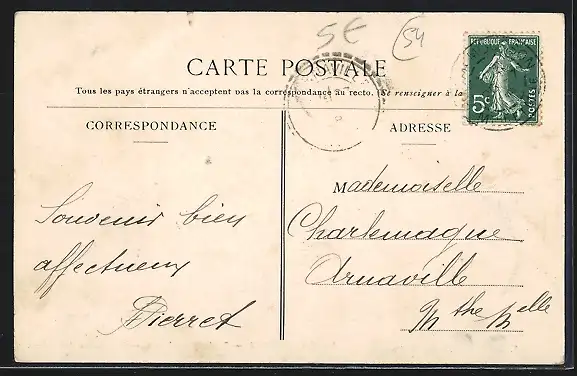 5E
54
CARTE POSTALE
Tous les pays étrangers n'acceptent pas la correspondance au recto. (Se renseigner à la
RÉPUBLIQUE FRANÇAISE
5c
POSTES
CORRESPONDANCE
ADRESSE
Souvenir bien
affectueux
Pierret
Mademoiselle
Charlemagne
Arnaville
Mthe Melle